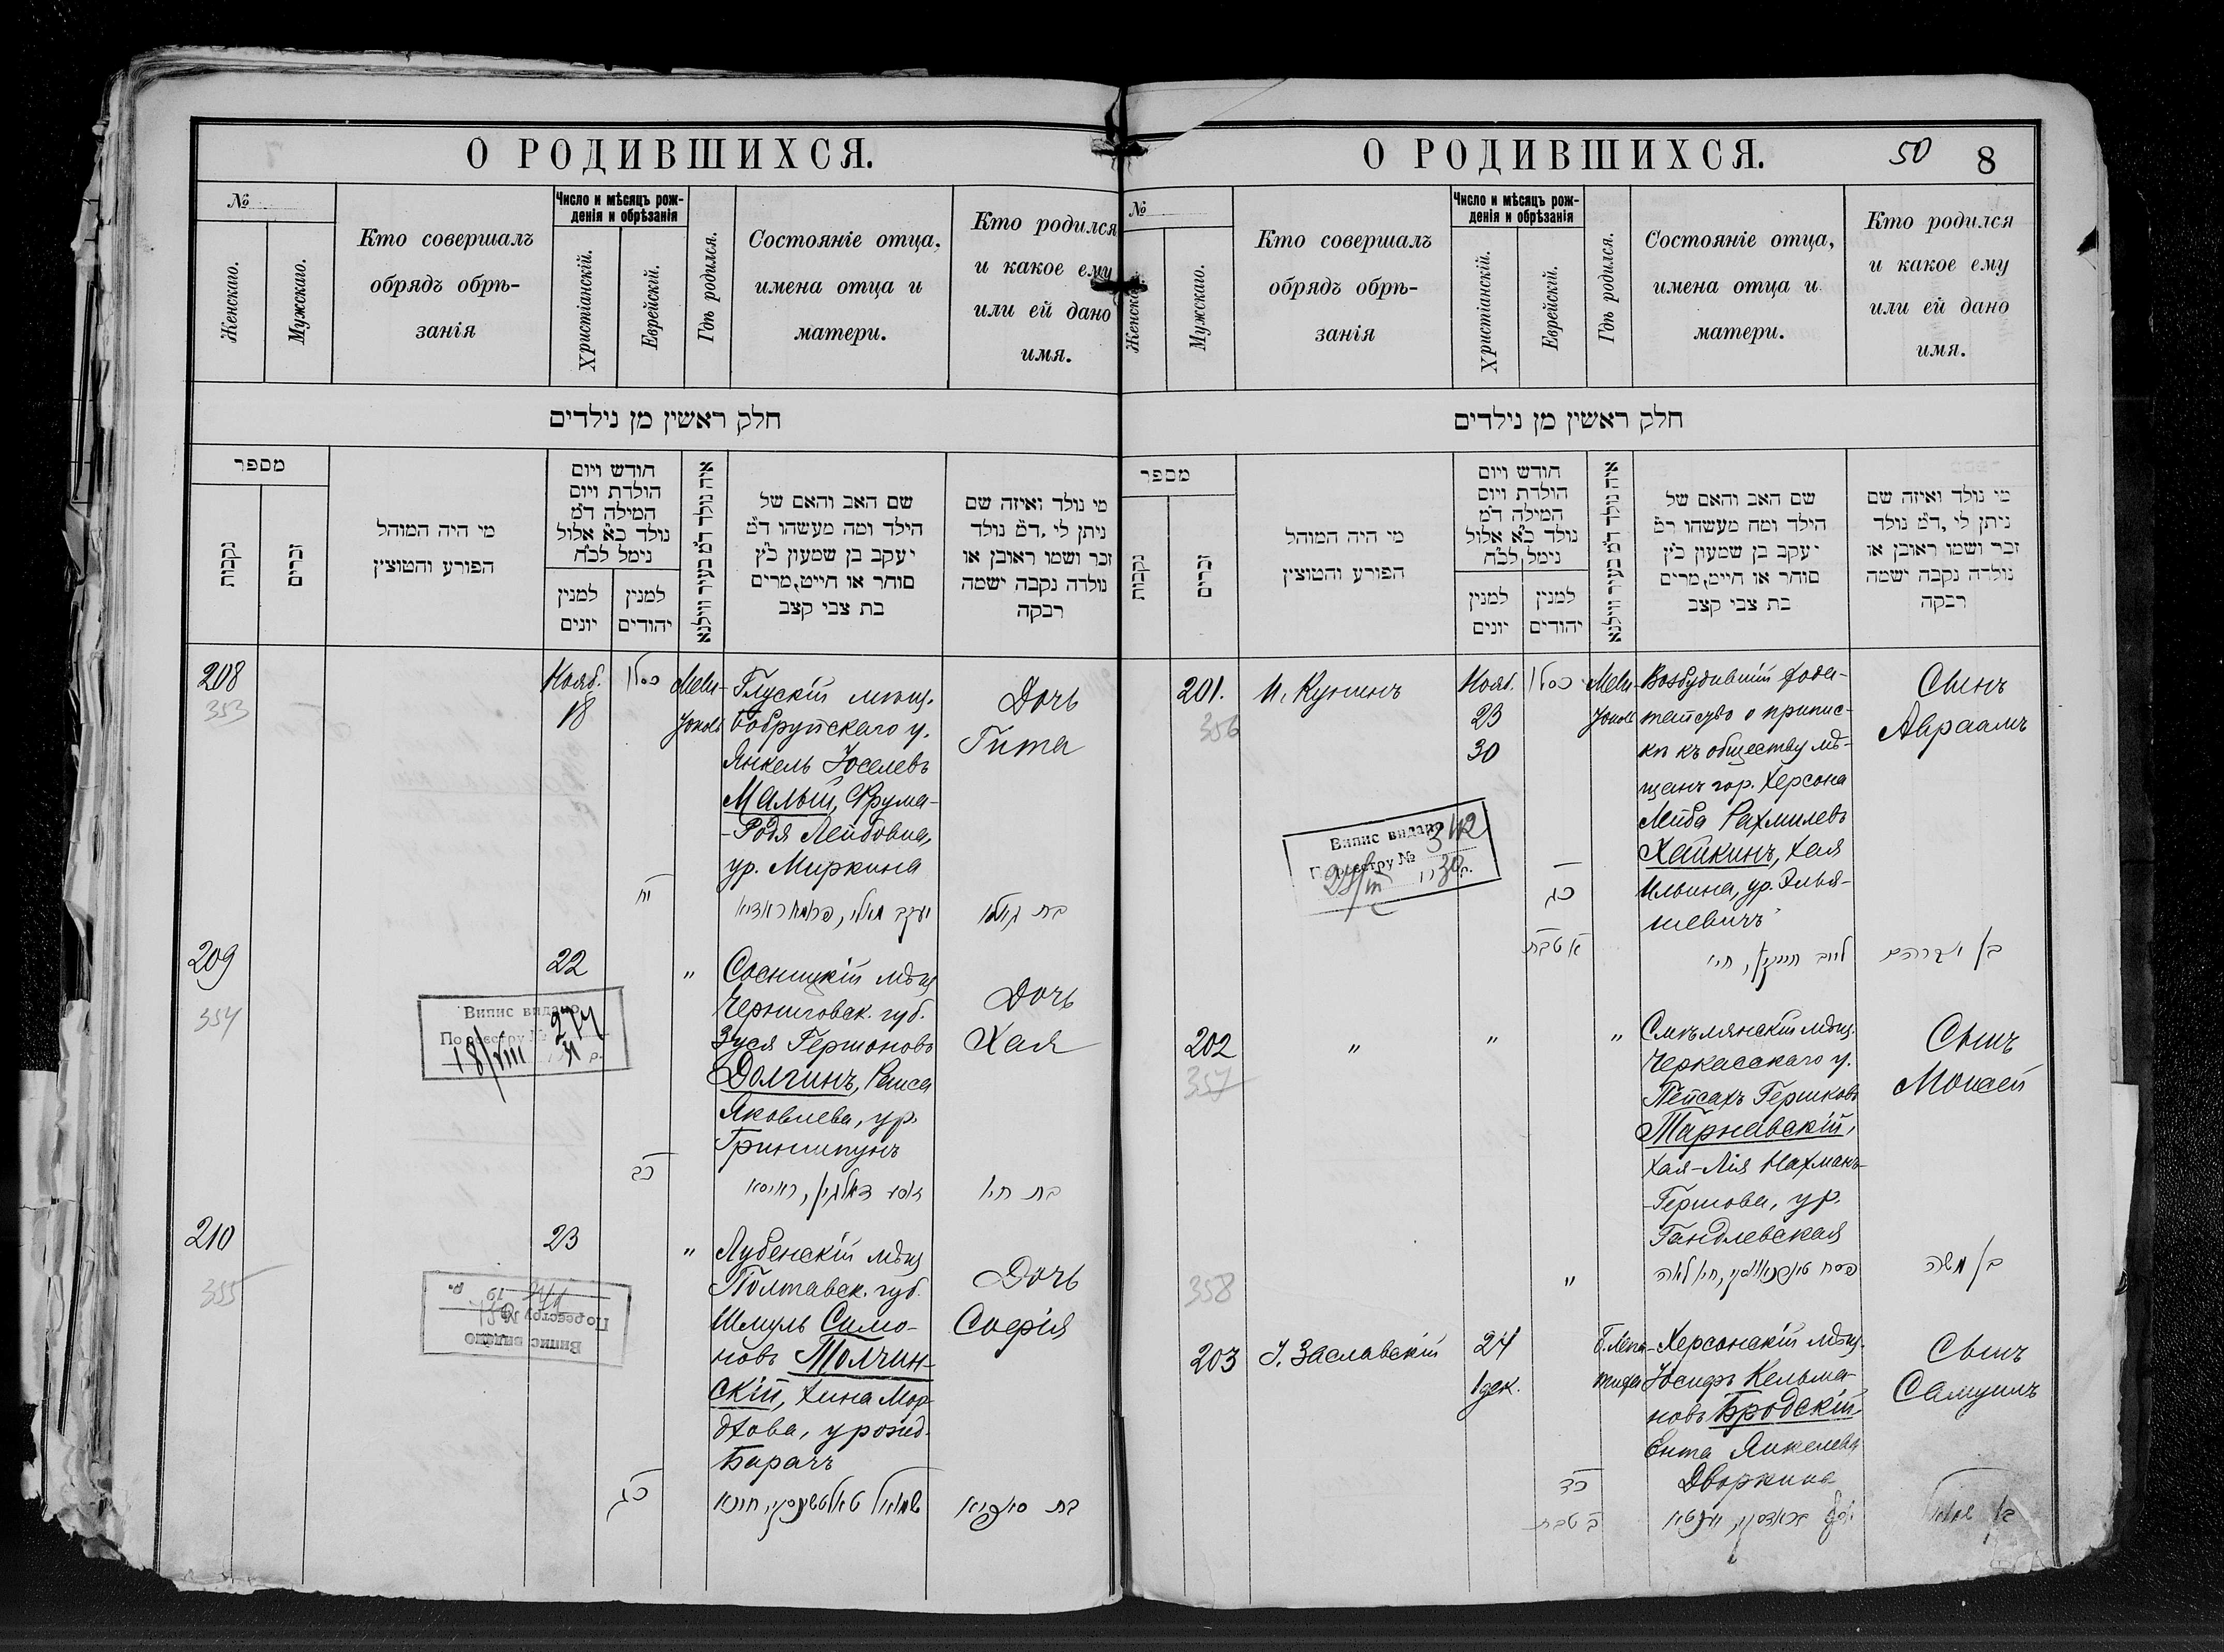 О РОДИВШИХСЯ.
№
Женскаго.
Мужскаго.
Кто совершалъ
обрядъ обрѣ-
занія
Число и мѣсяцъ рож-
денія и обрѣзанія
Христіанскій.
Еврейскій.
Гдѣ родился.
Состояніе отца,
имена отца и
матери.
Кто родился
и какое ему
или ей дано
имя.
חלק ראשין מן נילדים
מספר
נקבות
זכרים
מי היה המוהל
הפורע והמוצין
חודש ויום
הולדת ויום
המילה ד״מ
נולד כ״א אלול
נימל לכ״ח
למנין
יונים
למנין
יהודים
איה נולד ד״מ בעיר ווילנא
שם האב והאם של
הילד ומה מעשהו ד״מ
יעקב בן שמעון כ״ץ
סוחר או חייט, מרים
בת צבי קצב
מי נולד ואיזה שם
ניתן לי, ד״מ נולד
זכר ושמו ראובן או
נולדה נקבה ישמה
רבקה
208
353
Нояб.
18
כסלו
Мели-
тополь
Глускій мѣщ.
Бобруйскаго у.
Янкель Іоселевъ
Малый, Фрума-
-Родя Лейбовна,
ур. Миркина
Дочь
Гита
יח
בת גיטא
209
354
22
"
Сосницкій мѣщ
Черниговск. губ.
Зуся Гершоновъ
Долгинъ, Раиса
Яковлева, ур.
Гриншпунъ
Дочь
Хая
Випис видано
По реєстру № 274
18/VIII 31 р.
כב
בת חיי
210
355
23
"
Лубенскій мѣщ
Полтавск. губ.
Шмуль Симо-
новъ Толчин-
скій, Хина Мор-
дхова, урожд.
Барачъ
Дочь
Софія
Випис видано
По реєстру №
19 р.
כג
בת סופיא
О РОДИВШИХСЯ.
50
8
№
Женскаго.
Мужскаго.
Кто совершалъ
обрядъ обрѣ-
занія
Число и мѣсяцъ рож-
денія и обрѣзанія
Христіанскій.
Еврейскій.
Гдѣ родился.
Состояніе отца,
имена отца и
матери.
Кто родился
и какое ему
или ей дано
имя.
חלק ראשין מן נילדים
מספר
נקבות
זכרים
מי היה המוהל
הפורע והמוצין
חודש ויום
הולדת ויום
המילה ד״מ
נולד כ״א אלול
נימל לכ״ח
למנין
יונים
למנין
יהודים
איה נולד ד״מ בעיר ווילנא
שם האב והאם של
הילד ומה מעשהו ד״מ
יעקב בן שמעון כ״ץ
סוחר או חייט, מרים
בת צבי קצב
מי נולד ואיזה שם
ניתן לי, ד״מ נולד
זכר ושמו ראובן או
נולדה נקבה ישמה
רבקה
201.
356
И. Кунинъ
Нояб.
23
30
כסלו
Мели-
тополь
Возбудившій хода-
тайство о припис-
кѣ къ обществу мѣ-
щанъ гор. Херсона
Лейба Рахмилевъ
Хайкинъ, Хая
Ильина, ур. Элья-
шевичъ
Сынъ
Авраамъ
Випис видано
По реєстру № 342
כג
א טבת
לייב חייקין, חיי
בן אברהם
202
357
"
"
"
Смѣлянскій мѣщ.
Черкасскаго у.
Пейсахъ Гершковъ
Тарнавскій,
Хая-Лія Нахманъ-
-Гершова, ур.
Гандлевская
Сынъ
Моисей
"
בן משה
358
203
І. Заславскій
24
1 дек.
Б. Лепа-
тиха
Херсонскій мѣщ.
Іосифъ Кельма-
новъ Бродскій,
Ента Янкелева
Дворкина
Сынъ
Самуилъ
כד
ב טבת
יוסף בראדסקי, יענטא
בן שמואל